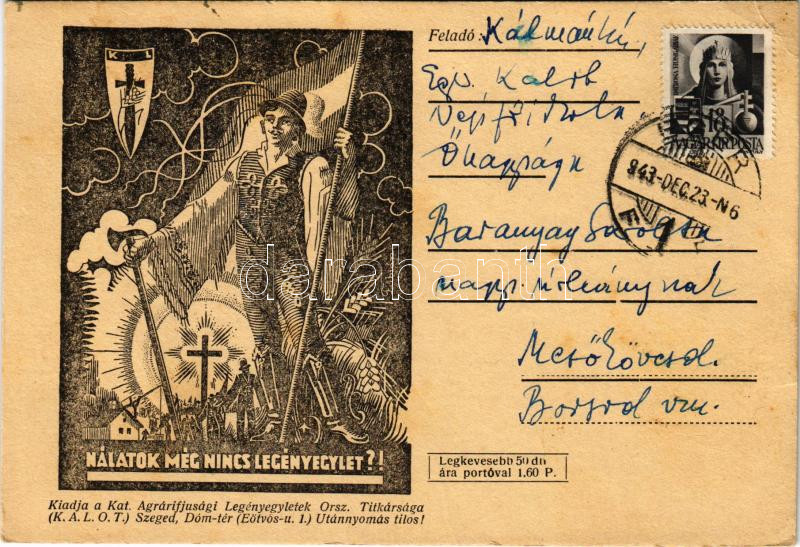 K L
Feladó: Kálmán
Egr. Kalot
Népfőiskola
Őnagysága
Baranyay
nagyp. úrleánynak
Mezőkövesd.
Borsod vm.
PATRONA HUNGARIAE
18
MAGYAR KIR. POSTA
E R
943-DEC.23.-N6
1
darabanth
NÁLATOK MÉG NINCS LEGÉNYEGYLET?!
Legkevesebb 50 db
ára portóval 1.60 P.
Kiadja a Kat. Agrárifjusági Legényegyletek Orsz. Titkársága
(K.A.L.O.T.) Szeged, Dóm-tér (Eötvös-u. 1.) Utánnyomás tilos!